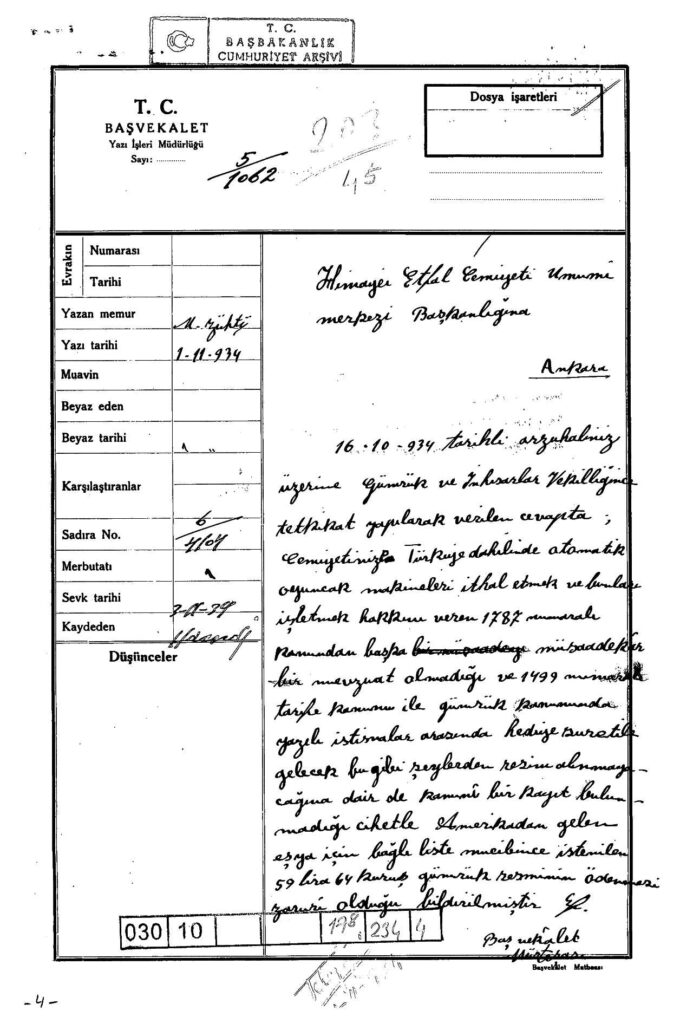 T. C.
BAŞBAKANLIK
CUMHURİYET ARŞİVİ
T. C.
BAŞVEKALET
Yazı İşleri Müdürlüğü
Sayı: 5/1062
203
45
Dosya işaretleri
Evrakın
Numarası
Tarihi
Yazan memur M. Zühtü
Yazı tarihi 1-11-934
Muavin
Beyaz eden
Beyaz tarihi
Karşılaştıranlar
Sadıra No. 6/4104
Merbutatı
Sevk tarihi 3-11-34
Kaydeden
Düşünceler
Himayei Etfal Cemiyeti Umumî
merkezi Başkanlığına
Ankara
16-10-934 tarihli arzuhaliniz
üzerine Gümrük ve İnhisarlar Vekilliğince
tetkikat yapılarak verilen cevapta ;
Cemiyetinize Türkiye dahilinde otomatik
oyuncak makineleri ithal etmek ve bunları
işletmek hakkını veren 1787 numaralı
kanundan başka bir müsaadeye müsaadekâr
bir mevzuat olmadığı ve 1499 numaralı
tarife kanunu ile gümrük kanununda
yazılı istisnalar arasında hediye suretile
gelecek bu gibi şeylerden resim alınmaya-
cağına dair de kanunî bir kayıt bulun-
madığı cihetle Amerikadan gelen
eşya için bağlı liste mucibince istenilen
59 lira 64 kuruş gümrük resminin ödenmesi
zarurî olduğu bildirilmiştir
Başvekâlet
Müsteşarı
Başvekâlet Matbaası
030 10 178 234 4
-4-